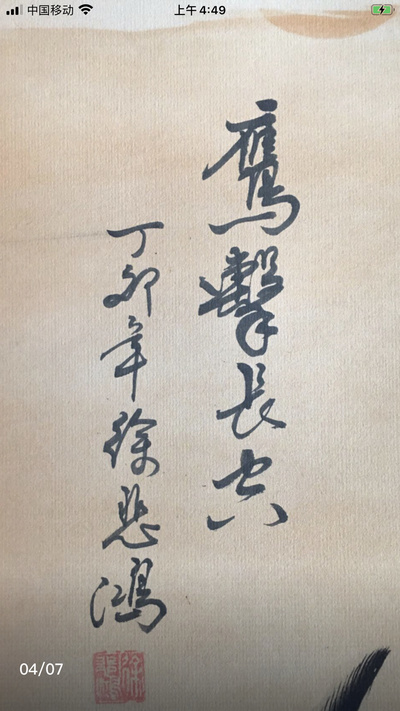 中国移动
上午4:49
鷹擊長空
丁卯年徐悲鴻
04/07